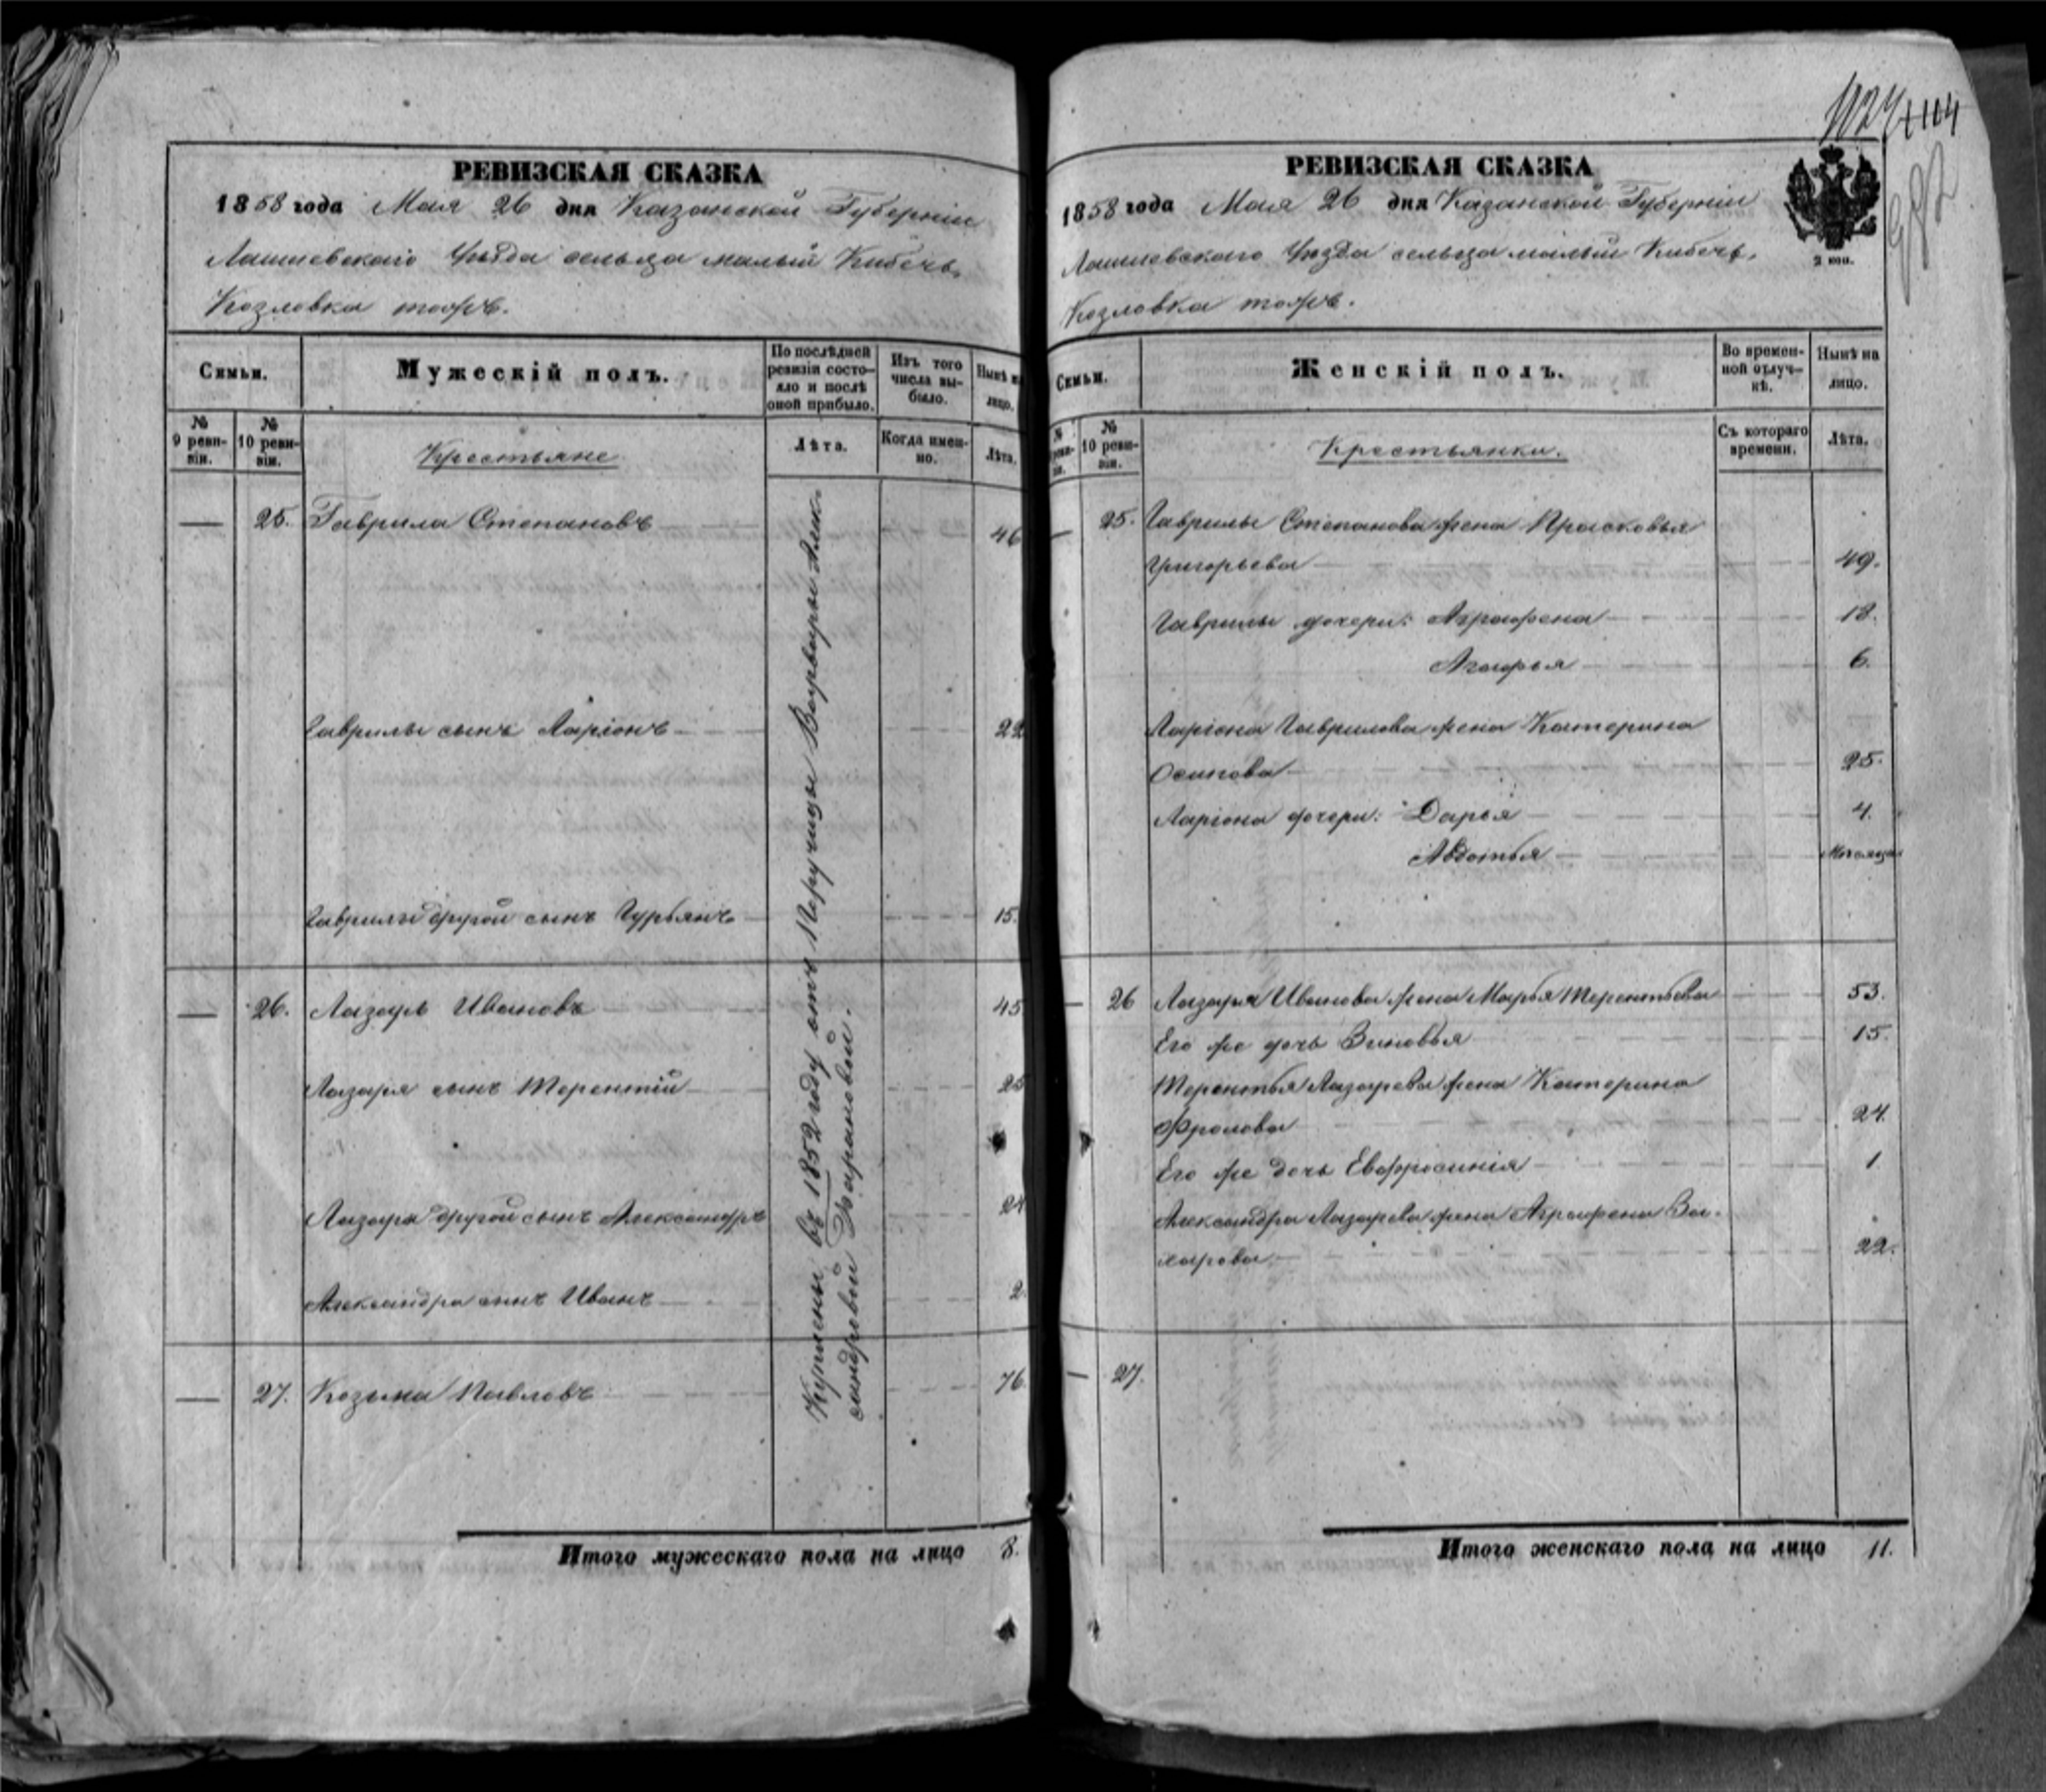 РЕВИЗСКАЯ СКАЗКА
1858 года Мая 26 дня Казанской Губерніи
Лаишевскаго Уѣзда сельца малый Кибечь,
Козловка тожъ.
Симьи.
Мужескій полъ.
По послѣдней
ревизіи состо-
яло и послѣ
оной прибыло.
Изъ того
числа вы-
было.
Нынѣ на
лицо.
№
9 реви-
зіи.
№
10 реви-
зіи.
Крестьяне
Лѣта.
Когда имен-
но.
Лѣта.
25. Гаврила Степановъ 46
Гаврилы сынъ Ларіонъ 22
Гаврилы другой сынъ Гурьянъ 15.
26. Лазарь Ивановъ 45
Лазаря сынъ Терентій 25
Лазаря другой сынъ Александръ 24
Александра сынъ Иванъ 2.
27. Козьма Павловъ 76
Куплены въ 1852 году отъ Поручицы Варвары Алек-
сандровой
Итого мужескаго пола на лицо 8.
1104
РЕВИЗСКАЯ СКАЗКА
1858 года Мая 26 дня Казанской Губерніи
Лаишевскаго Уѣзда сельца малый Кибечь,
Козловка тожъ.
2 коп.
Симьи.
Женскій полъ.
Во времен-
ной отлуч-
кѣ.
Нынѣ на
лицо.
№
реви-
зіи.
№
10 реви-
зіи.
Крестьянки.
Съ котораго
времени.
Лѣта.
25. Гаврилы Степанова жена Прасковья
Григорьева 49.
Гаврилы дочери: Аграфена 18.
Агафья 6.
Ларіона Гаврилова жена Катерина
Осипова 25.
Ларіона дочери: Дарья 4.
Авдотья
26 Лазаря Иванова жена Марья Терентьева 53.
Его же дочь Зиновья 15.
Терентья Лазарева жена Катерина
Фролова 24.
Его же дочь Евфросинія 1
Александра Лазарева жена Аграфена За-
харова 22.
27.
Итого женскаго пола на лицо 11.